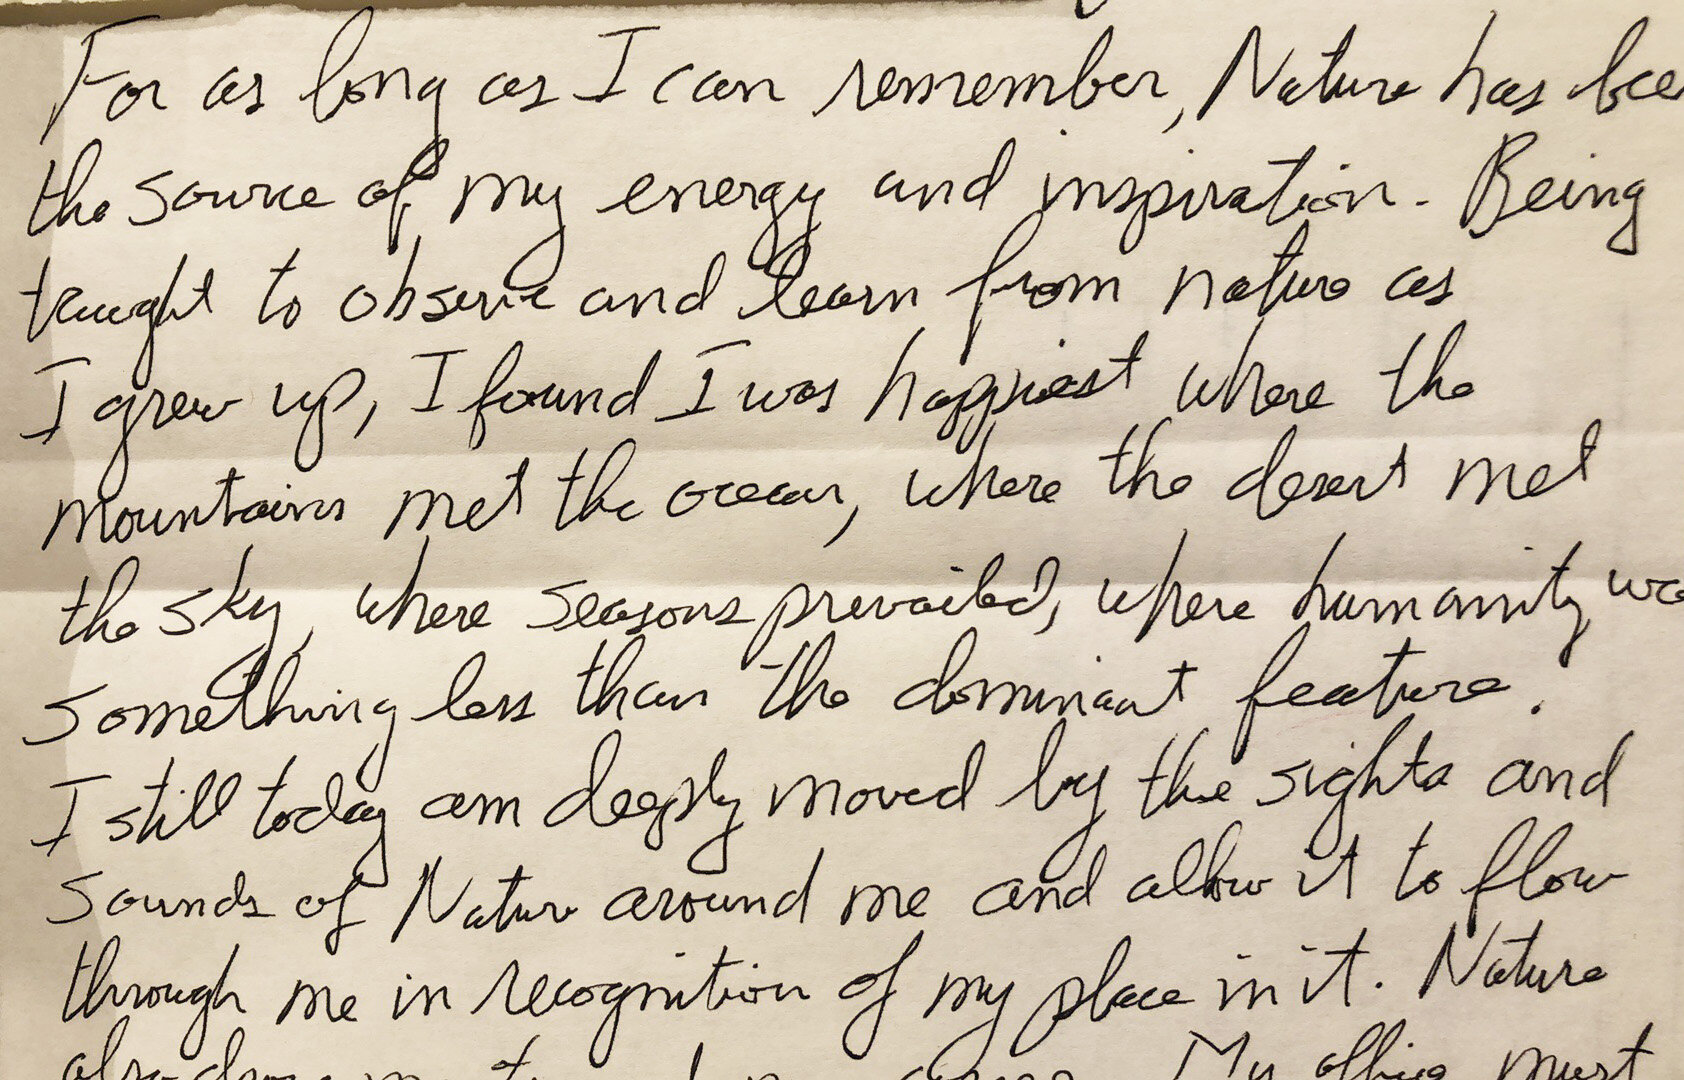 For as long as I can remember, Nature has bee
the source of my energy and inspiration. Being
taught to observe and learn from nature as
I grew up, I found I was happiest where the
mountains met the ocean, where the desert met
the sky, where seasons prevailed, where humanity wa
something less than the dominant feature.
I still today am deeply moved by the sights and
sounds of Nature around me and allow it to flow
through me in recognition of my place in it. Nature
My office must